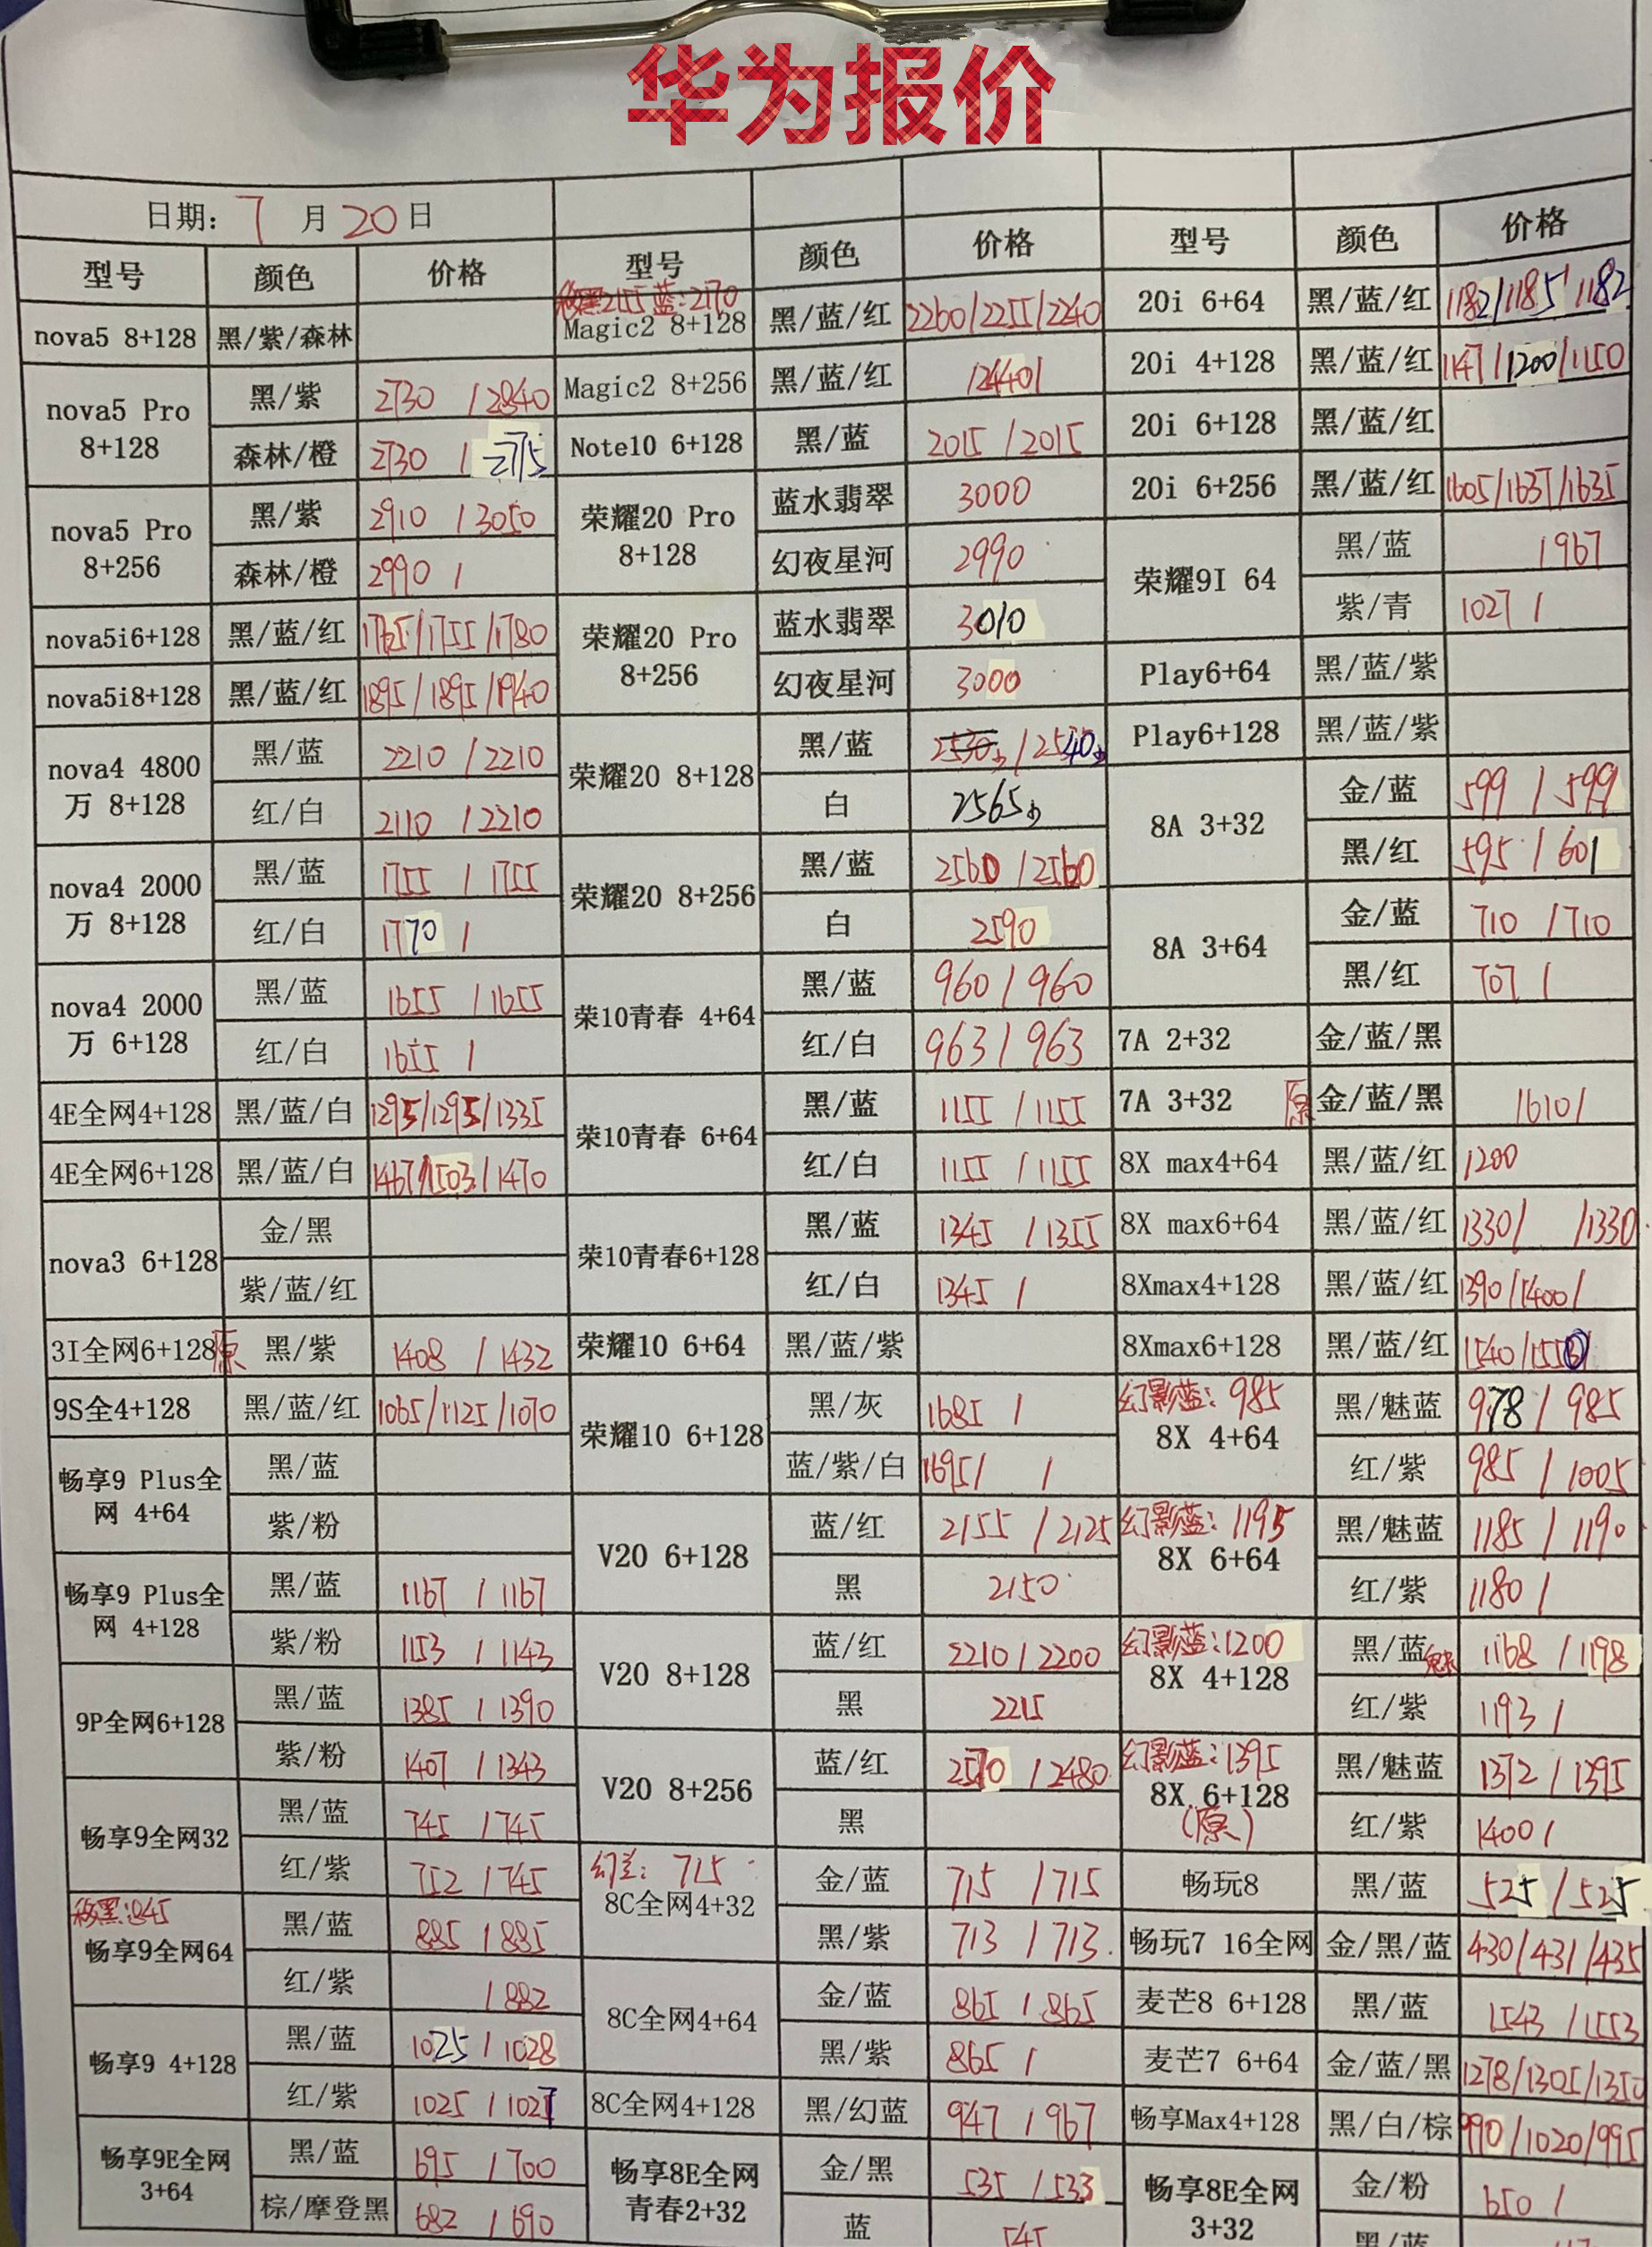 华为报价
日期: 7 月 20 日
型号 颜色 价格 型号 颜色 价格 型号 颜色 价格
nova5 8+128 黑/紫/森林
nova5 Pro 8+128 黑/紫 2730 /2840
森林/橙 2730 / 2775
nova5 Pro 8+256 黑/紫 2910 /3050
森林/橙 2990 /
nova5i6+128 黑/蓝/红 1725/1755/1780
nova5i8+128 黑/蓝/红 1895/1895/1940
nova4 4800万 8+128 黑/蓝 2210 /2210
红/白 2110 /2210
nova4 2000万 8+128 黑/蓝 1755 / 1755
红/白 1770 /
nova4 2000万 6+128 黑/蓝 1655 /1655
红/白 1655 /
4E全网4+128 黑/蓝/白 1295/1295/1335
4E全网6+128 黑/蓝/白 1467/1503/1470
nova3 6+128 金/黑
紫/蓝/红
3I全网6+128原 黑/紫 1408 /1432
9S全4+128 黑/蓝/红 1065/1125/1070
畅享9 Plus全网 4+64 黑/蓝
紫/粉
畅享9 Plus全网 4+128 黑/蓝 1167 /1167
紫/粉 1153 /1143
9P全网6+128 黑/蓝 1385 /1390
紫/粉 1407 /1343
畅享9全网32 黑/蓝 745 /745
红/紫 752 /745
极黑:845
畅享9全网64 黑/蓝 885 /885
红/紫 /882
畅享9 4+128 黑/蓝 1025 /1028
红/紫 1025 /1027
畅享9E全网 3+64 黑/蓝 695 /700
棕/摩登黑 682 /690
极黑2155 蓝:2170
Magic2 8+128 黑/蓝/红 2260/2255/2240
Magic2 8+256 黑/蓝/红 /2440/
Note10 6+128 黑/蓝 2015 /2015
荣耀20 Pro 8+128 蓝水翡翠 3000
幻夜星河 2990
荣耀20 Pro 8+256 蓝水翡翠 3010
幻夜星河 3000
荣耀20 8+128 黑/蓝 2530 /2540
白 2565
荣耀20 8+256 黑/蓝 2560 /2560
白 2590
荣10青春 4+64 黑/蓝 960 / 960
红/白 963 / 963
荣10青春 6+64 黑/蓝 1155 /1155
红/白 1155 /1155
荣10青春6+128 黑/蓝 1345 /1355
红/白 1345 /
荣耀10 6+64 黑/蓝/紫
荣耀10 6+128 黑/灰 1685 /
蓝/紫/白 1695/ /
V20 6+128 蓝/红 2155 /2125
黑 2150
V20 8+128 蓝/红 2210 /2200
黑 2215
V20 8+256 蓝/红 2570 /2480
黑
幻兰: 715
8C全网4+32 金/蓝 715 /715
黑/紫 713 /713
8C全网4+64 金/蓝 865 /865
黑/紫 865 /
8C全网4+128 黑/幻蓝 947 /967
畅享8E全网青春2+32 金/黑 535 /533
蓝 545
20i 6+64 黑/蓝/红 1182/1185/1182
20i 4+128 黑/蓝/红 1147/1200/1150
20i 6+128 黑/蓝/红
20i 6+256 黑/蓝/红 1605/1637/1635
荣耀9I 64 黑/蓝 1967
紫/青 1027 /
Play6+64 黑/蓝/紫
Play6+128 黑/蓝/紫
8A 3+32 金/蓝 599 / 599
黑/红 595 / 601
8A 3+64 金/蓝 710 /710
黑/红 707 /
7A 2+32 金/蓝/黑
7A 3+32 原 金/蓝/黑 /610/
8X max4+64 黑/蓝/红 1200
8X max6+64 黑/蓝/红 1330/ /1330
8Xmax4+128 黑/蓝/红 1390/1400/
8Xmax6+128 黑/蓝/红 1540/1550/
幻影蓝: 985
8X 4+64 黑/魅蓝 978 / 985
红/紫 985 /1005
幻影蓝: 1195
8X 6+64 黑/魅蓝 1185 /1190
红/紫 1180 /
幻影蓝:1200
8X 4+128 黑/蓝魅 1168 /1198
红/紫 1193 /
幻影蓝:1395
8X 6+128 (原) 黑/魅蓝 1372 /1395
红/紫 1400 /
畅玩8 黑/蓝 525 / 525
畅玩7 16全网 金/黑/蓝 430/431/435
麦芒8 6+128 黑/蓝 1543 /1553
麦芒7 6+64 金/蓝/黑 1278/1305/1350
畅享Max4+128 黑/白/棕 990/1020/995
畅享8E全网 3+32 金/粉 650 /
黑/蓝